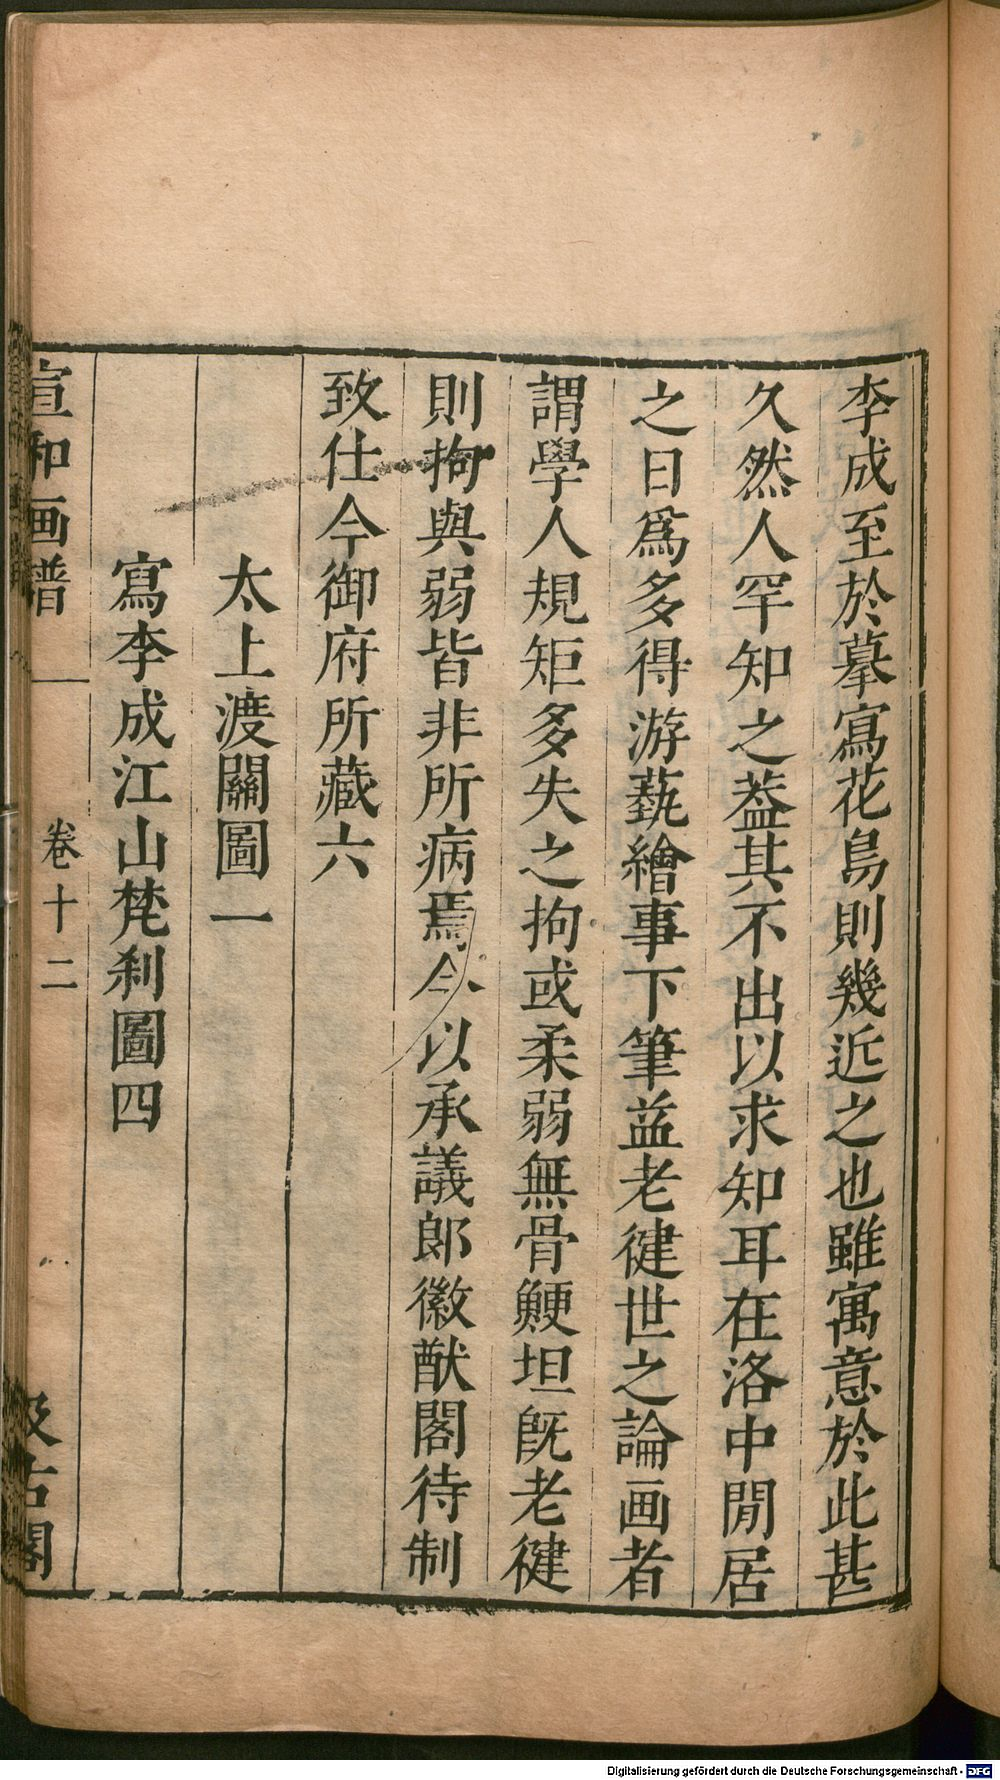 李成至於摹寫花鳥則幾近之也雖寓意於此甚
久然人罕知之葢其不出以求知耳在洛中閒居
之日爲多得游蓺繪事下筆益老健世之論画者
謂學人規矩多失之拘或柔弱無骨鯁坦旣老健
則拘與弱皆非所病焉今以承議郎徽猷閣待制
致仕今御府所藏六
太上渡關圖一
寫李成江山梵刹圖四
宣和画譜
卷十二
汲古閣
Digitalisierung gefördert durch die Deutsche Forschungsgemeinschaft - DFG